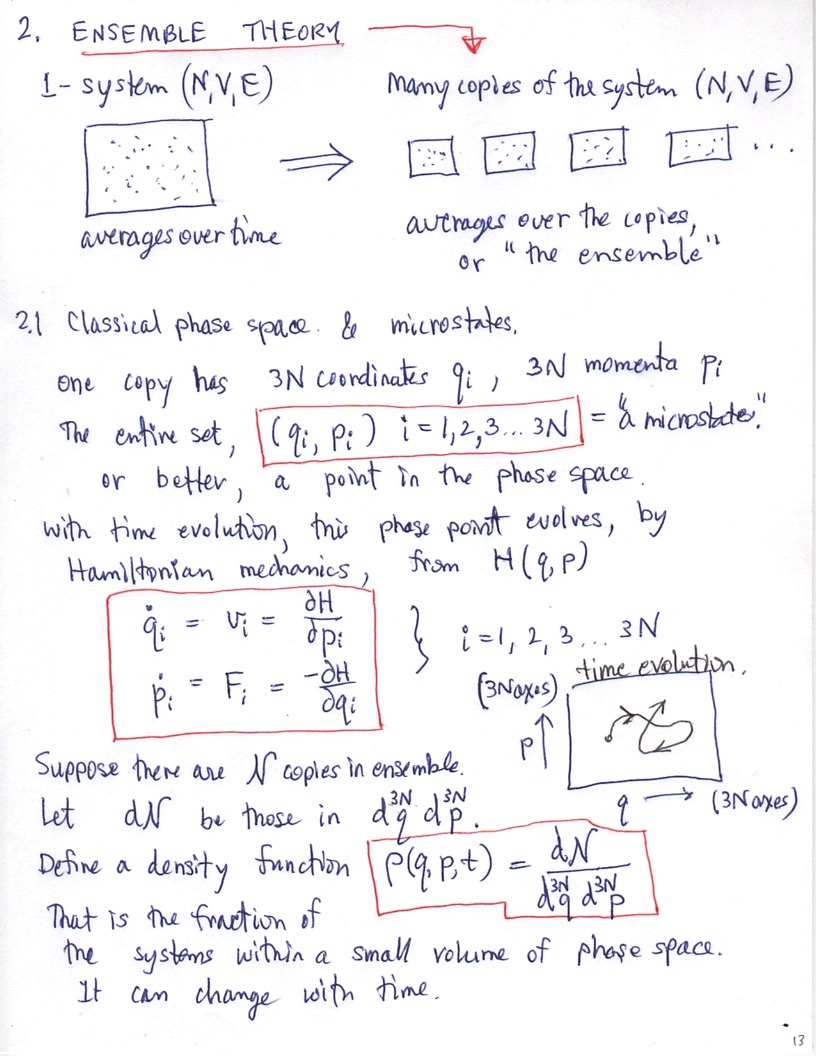 2. ENSEMBLE THEORY
1-system (N,V,E)
Many copies of the system (N,V,E)
...
averages over time
averages over the copies,
or "the ensemble"
2.1 Classical phase space. & microstates.
One copy has 3N coordinates qi, 3N momenta pi
The entire set, (qi, pi) i = 1,2,3... 3N = "a microstate".
or better, a point in the phase space.
with time evolution, this phase point evolves, by
Hamiltonian mechanics, from H(q,p)
q̇i = vi = ∂H/∂pi
ṗi = Fi = -∂H/∂qi
} i = 1, 2, 3... 3N
time evolution.
(3N axes)
p ↑
q → (3N axes)
Suppose there are N copies in ensemble.
Let dN be those in d³ᴺq d³ᴺp.
Define a density function ρ(q,p,t) = dN / d³ᴺq d³ᴺp
That is the fraction of
the systems within a small volume of phase space.
It can change with time.
13